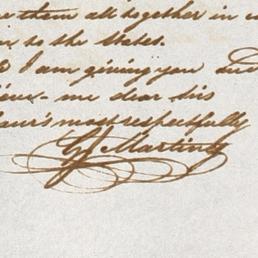 them all together in
to the States.
I am giving you
me dear sir
most respectfully
Martin